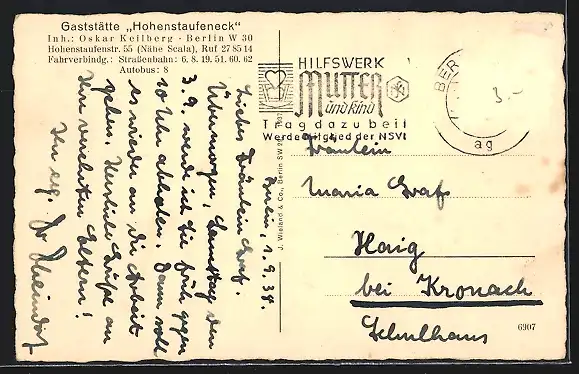 Gaststätte „Hohenstaufeneck"
Inh.: Oskar Keilberg - Berlin W 30
Hohenstaufenstr. 55 (Nähe Scala), Ruf 27 85 14
Fahrverbindg.: Straßenbahn: 6. 8. 19. 51. 60. 62
Autobus: 8
Berlin, 1. 9. 38.
Liebes Fräulein Graf.
Übermorgen, Samstag den
3. 9. werde ich Sie früh gegen
10 Uhr abholen. Dann soll
es wieder an die Arbeit
gehen. Herzliche Grüße an
Ihre verehrten Eltern!
Ihr erg.
J. Wieland & Co., Berlin SW
HILFSWERK
MUTTER
und Kind
Trag dazu bei!
Werde Mitglied der NSV!
BER
3.-
ag
Fräulein
Maria Graf
Haig
bei Kronach
Schulhaus
6907